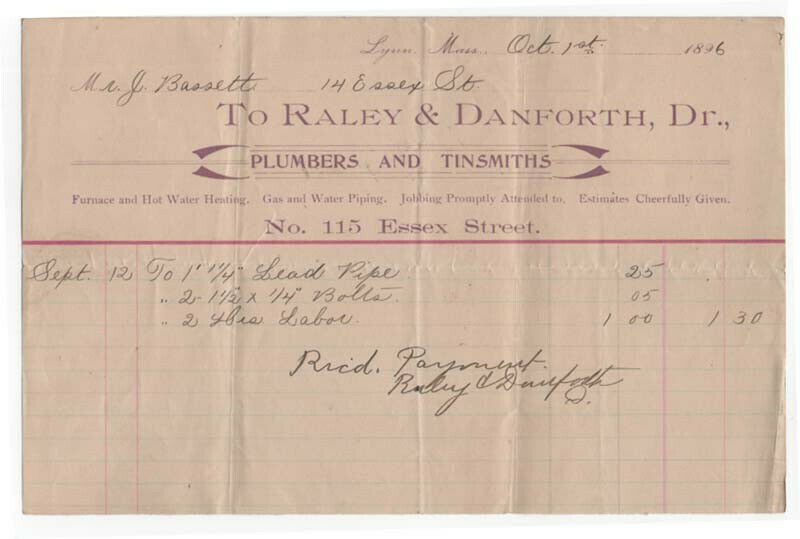 Lynn, Mass., Oct. 1st. 1896
Mr. J. Bassett 14 Essex St.
To RALEY & DANFORTH, Dr.,
PLUMBERS AND TINSMITHS
Furnace and Hot Water Heating. Gas and Water Piping. Jobbing Promptly Attended to. Estimates Cheerfully Given.
No. 115 Essex Street.
Sept. 12 To 1' 1¼" Lead Pipe. 25
" 2 - 1½ x ¼" Bolts. 05
" 2 Labor. 1 00 1 30
Rec'd. Payment.
Raley & Danforth